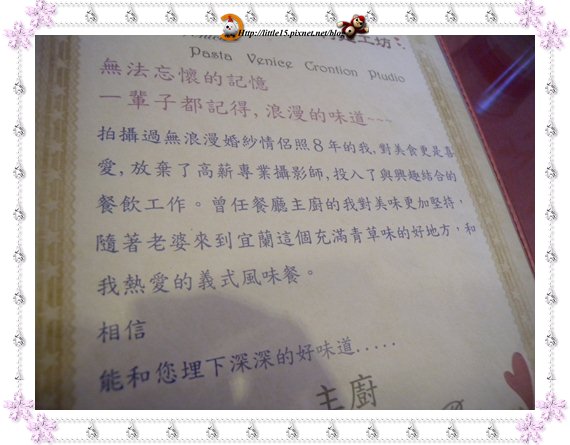 Http://little15.pixnet.net/blog
工坊
Pasta Venice Crontion Ptudio
無法忘懷的記憶
一輩子都記得，浪漫的味道~~~
拍攝過無浪漫婚紗情侶照8年的我，對美食更是喜
愛，放棄了高薪專業攝影師，投入了與興趣結合的
餐飲工作。曾任餐廳主廚的我對美味更加堅持，
隨著老婆來到宜蘭這個充滿青草味的好地方，和
我熱愛的義式風味餐。
相信
能和您埋下深深的好味道.....
主廚